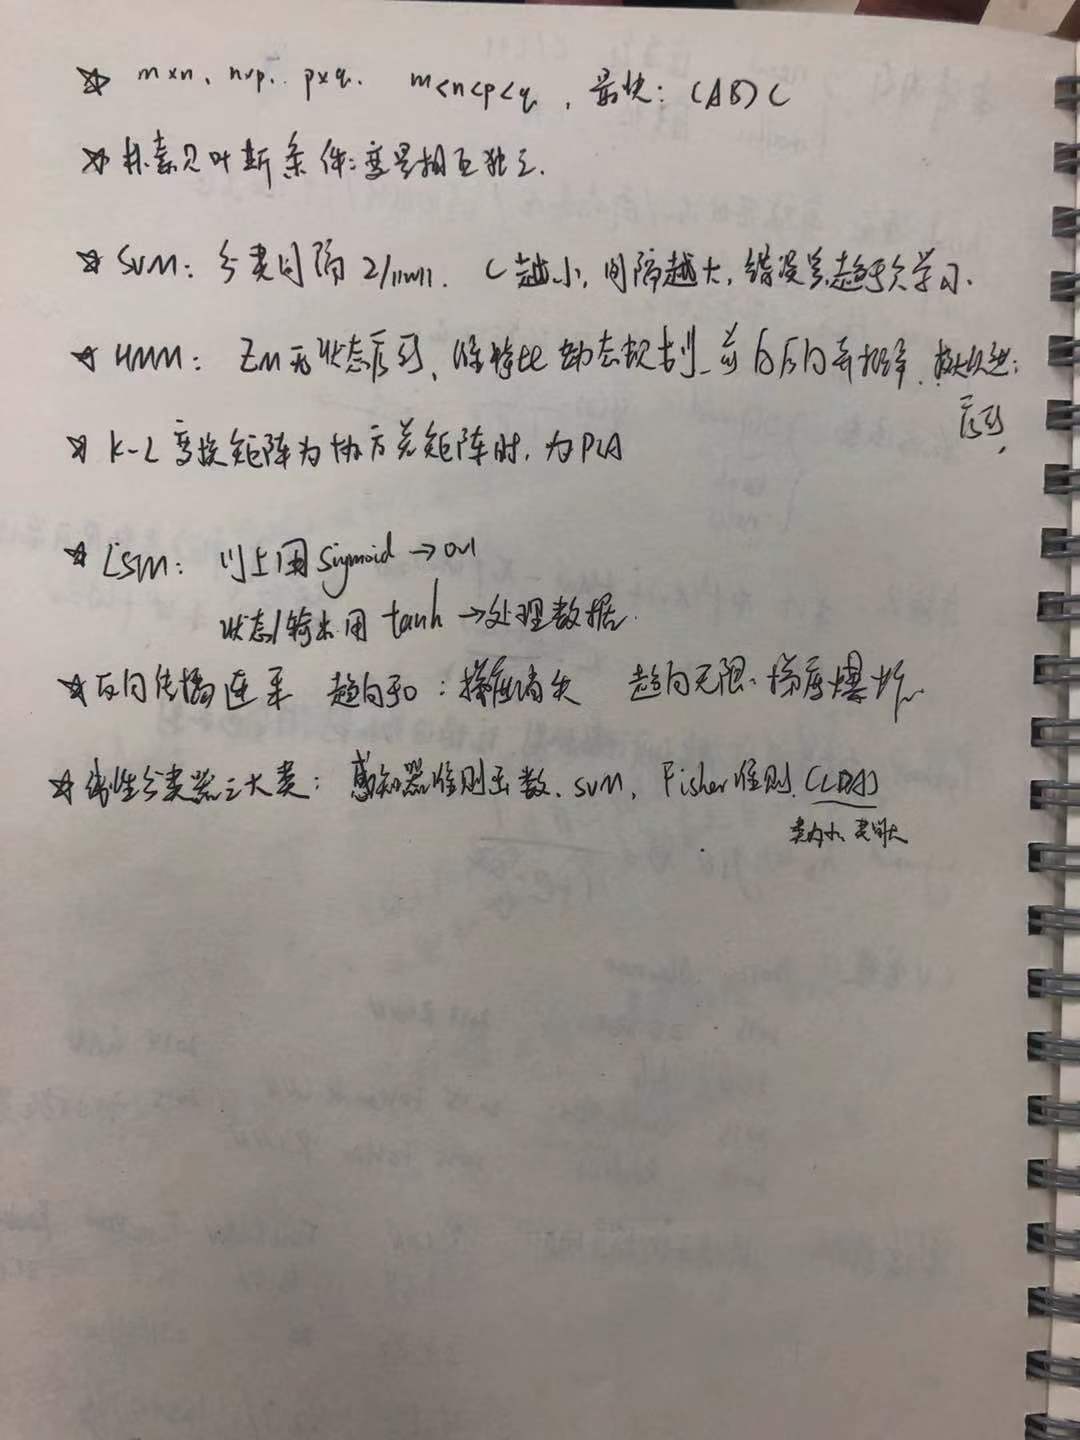 ☆ m×n、n×p、p×q、 m<n<p<q，最快：(AB)C
☆ 朴素贝叶斯条件：变量相互独立.
☆ SVM：分类间隔 2/||w||. C越小，间隔越大，错误多，趋于欠学习.
☆ HMM：EM无状态序列、维特比 动态规划、前向后向算概率、极大似然：
序列，
☆ K-L 变换矩阵为协方差矩阵时，为PCA
☆ LSTM： 门上用 Sigmoid → 0~1
状态/输出用 tanh → 处理数据.
☆ 反向传播连乘 趋向于0：梯度消失 趋向无限、梯度爆炸
☆ 线性分类器三大类：感知器准则函数、SVM、Fisher准则 (LDA)
类内小、类间大